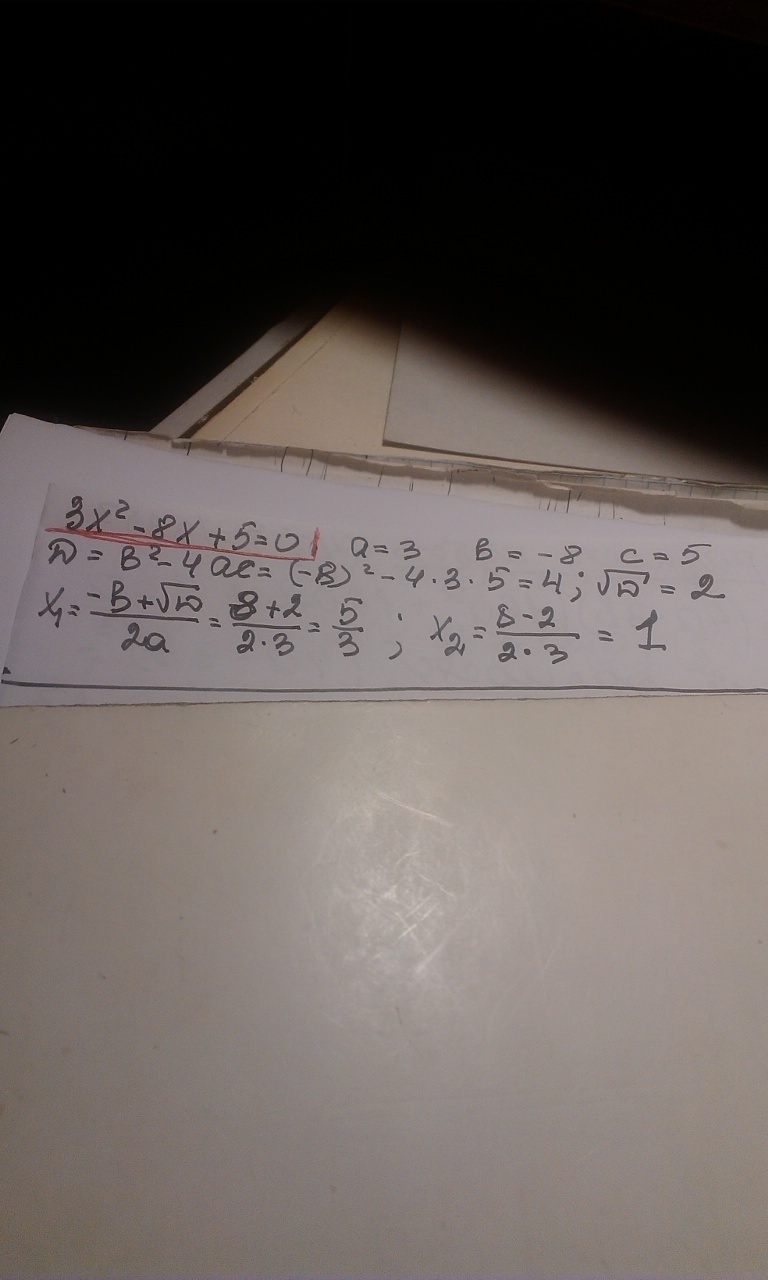 3x² - 8x + 5 = 0 a = 3 в = -8 c = 5
D = в² - 4ac = (-8)² - 4·3·5 = 4; √D = 2
x₁ = (-в + √D)/(2a) = (8 + 2)/(2·3) = 5/3 ; x₂ = (8 - 2)/(2·3) = 1